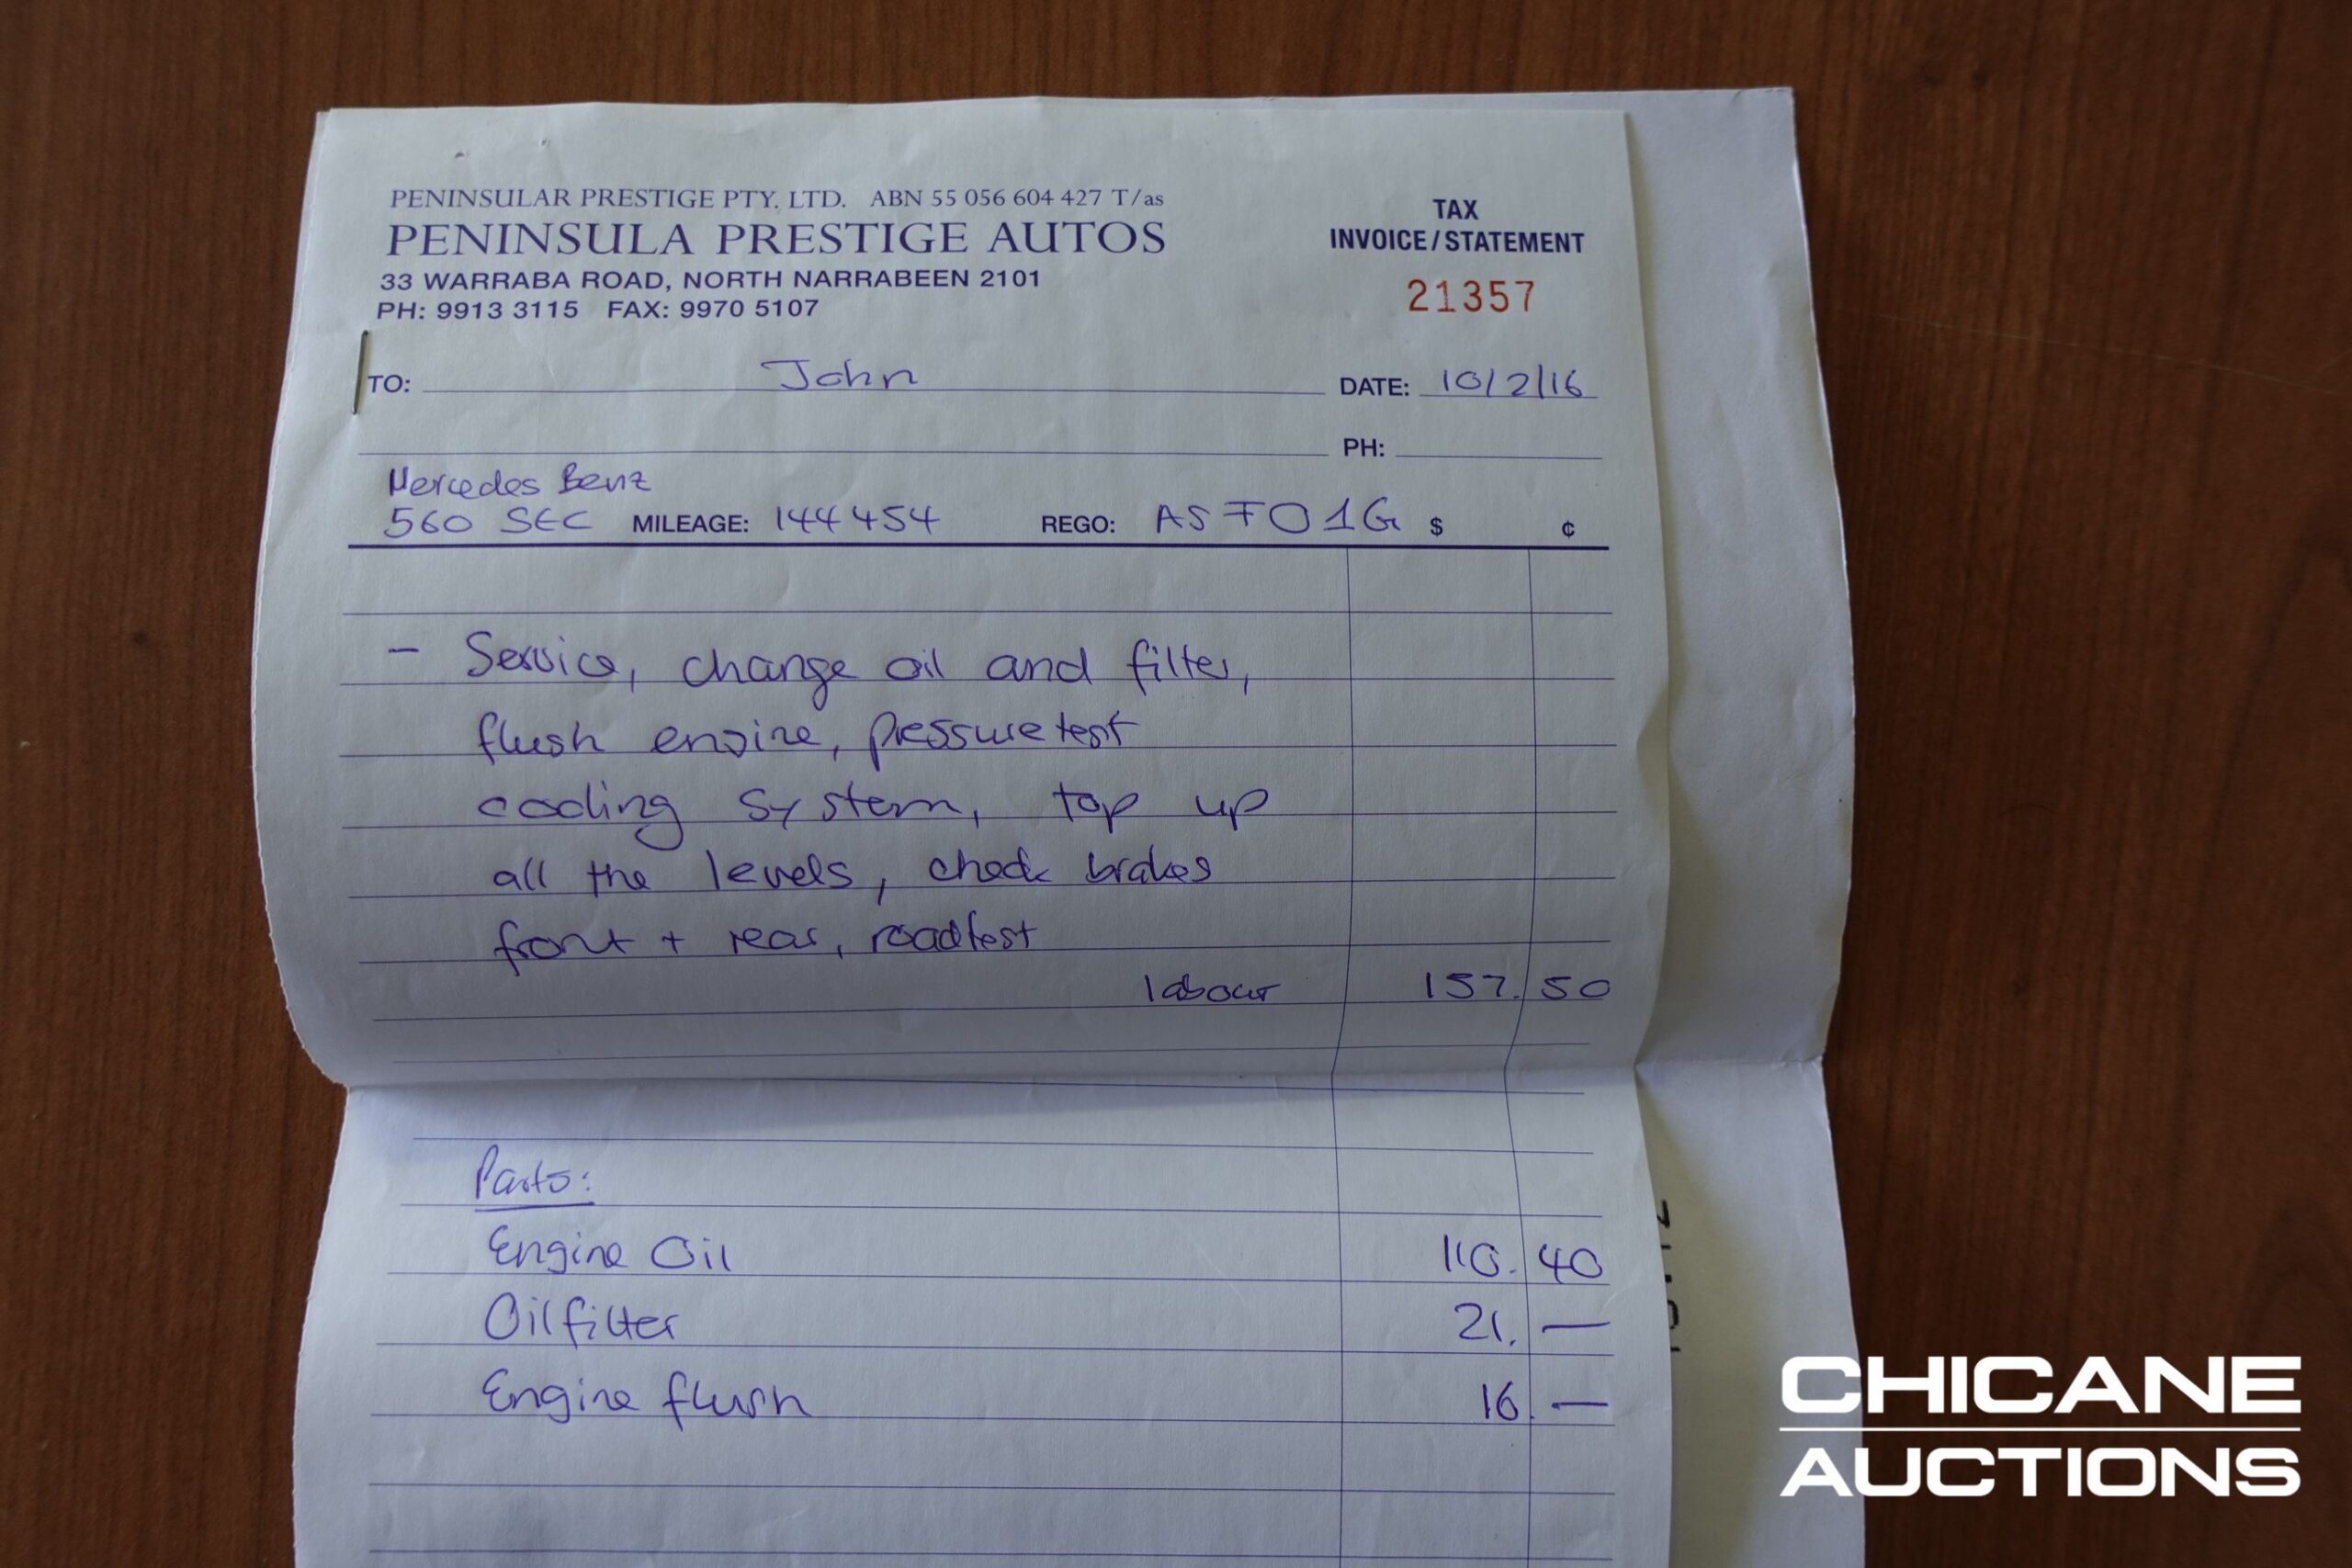 PENINSULAR PRESTIGE PTY. LTD. ABN 55 056 604 427 T/as
PENINSULA PRESTIGE AUTOS
33 WARRABA ROAD, NORTH NARRABEEN 2101
PH: 9913 3115 FAX: 9970 5107
TAX
INVOICE/STATEMENT
21357
TO: John DATE: 10/2/16
PH:
Mercedes Benz
560 SEC MILEAGE: 144454 REGO: AS FO 1G $ ¢
- Service, change oil and filter,
flush engine, pressure test
cooling system, top up
all the levels, check brakes
front + rear, roadtest
labour 157. 50
Parts:
Engine Oil 110. 40
Oilfilter 21. —
Engine flush 16. —
CHICANE
AUCTIONS